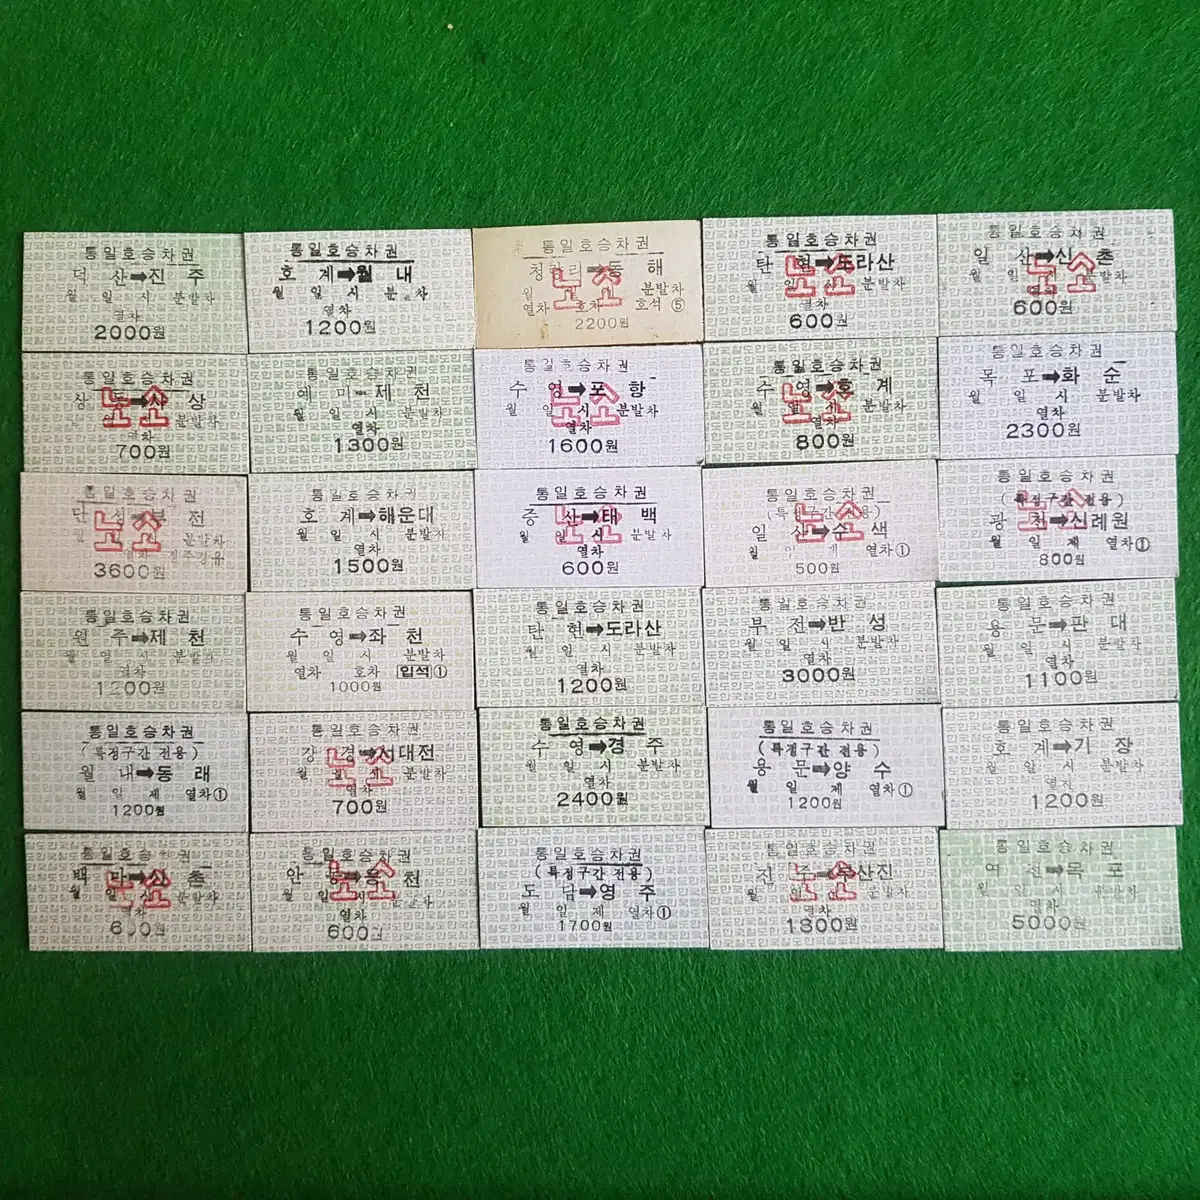 통일호승차권
덕 산➡진 주
월 일 시 분발차
열차
2000원
통일호승차권
호 계➡월 내
월 일 시 분 차
열차
1200원
통일호승차권
청량리➡동 해
노소
월 분발차
열차 호차 호석 ⑤
2200원
통일호승차권
탄 현➡도라산
노소
월 일 시 분발차
열차
600원
통일호승차권
일 산➡신 촌
노소
월 일 시 분발차
600원
통일호승차권
상 사 상
노소
월 일 시 분발차
열차
700원
통일호승차권
예 미➡제 천
월 일 시 분발차
열차
1300원
통일호승차권
수 영➡포 항
노소
월 일 시 분발차
열차
1600원
통일호승차권
수 영➡호 계
노소
월 일 시 분발차
열차
800원
통일호승차권
목 포➡화 순
월 일 시 분발차
열차
2300원
통일호승차권
단 성➡부 전
노소
분발차
열차
3600원
통일호승차권
호 계➡해운대
월 일 시 분발차
열차
1500원
통일호승차권
증 산➡태 백
노소
월 일 시 분발차
열차
600원
통일호승차권
(특정구간 전용)
일 산➡수 색
노소
월 일 제 열차①
500원
통일호승차권
(특정구간 전용)
광 천➡신례원
노소
월 일 제 열차①
800원
통일호승차권
원 주➡제 천
월 일 시 분발차
열차
1200원
통일호승차권
수 영➡좌 천
월 일 시 분발차
열차 호차 입석①
1000원
통일호승차권
탄 현➡도라산
월 일 시 분발차
열차
1200원
통일호승차권
부 전➡반 성
월 일 시 분발차
열차
3000원
통일호승차권
용 문➡판 대
월 일 시 분발차
열차
1100원
통일호승차권
(특정구간 전용)
월 내➡동 래
월 일 제 열차①
1200원
통일호승차권
강 경➡서대전
노소
월 일 시 분발차
열차
700원
통일호승차권
수 영➡경 주
월 일 시 분발차
열차
2400원
통일호승차권
(특정구간 전용)
용 문➡양 수
월 일 제 열차①
1200원
통일호승차권
호 계➡기 장
월 일 시 분발차
열차
1200원
통일호승차권
백 마➡신 촌
노소
월 일 시 분발차
열차
600원
통일호승차권
안 천
노소
월 일 시 분발차
열차
600원
통일호승차권
(특정구간 전용)
도 담➡영 주
월 일 제 열차①
1700원
통일호승차권
진 주➡부산진
노소
월 일 시 분발차
열차
1800원
통일호승차권
여 천➡목 포
월 일 시 분발차
열차
5000원